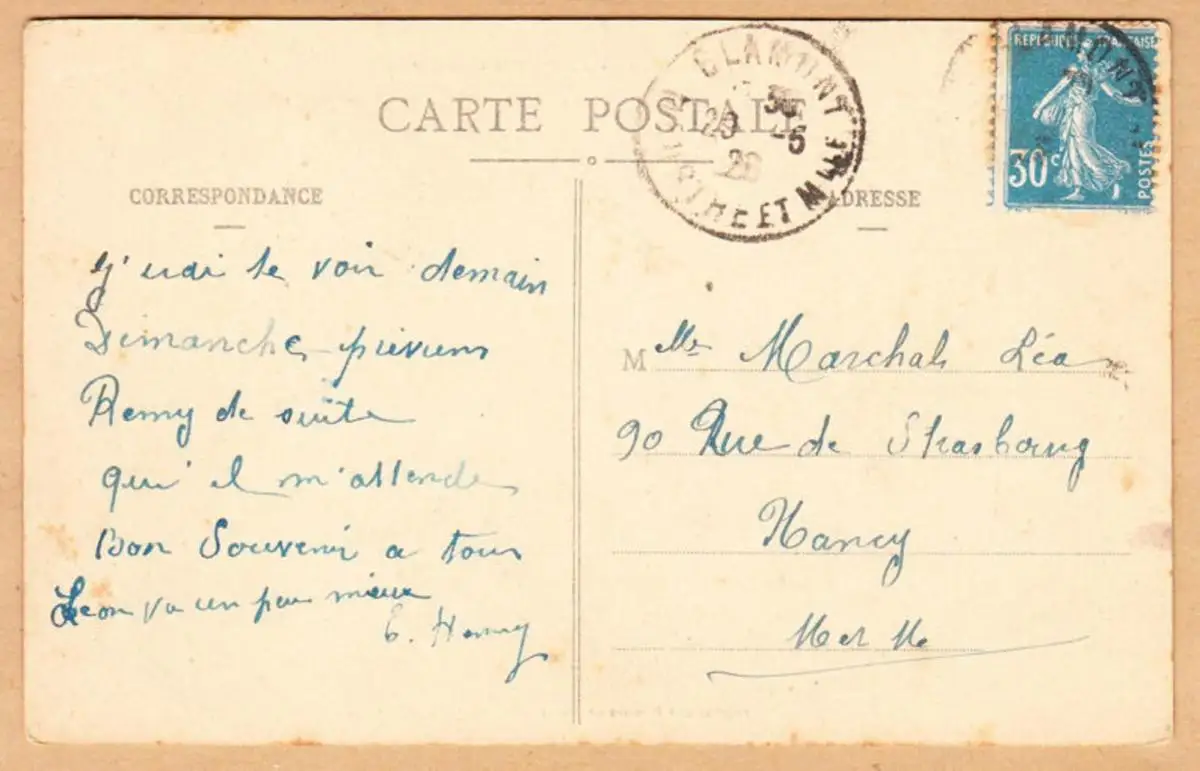 CARTE POSTALE
BLAMONT
30
20 -5
26
MTHE ET MLLE
REPUBLIQUE FRANÇAISE
30c
POSTES
CORRESPONDANCE
j'irai te voir demain
Dimanche previens
Remy de suite
qui il m'attende
Bon Souvenir a tous
Leon va un peu mieux
E. Henry
ADRESSE
M elle Marchal Léa
90 Rue de Strasbourg
Nancy
M et Mlle